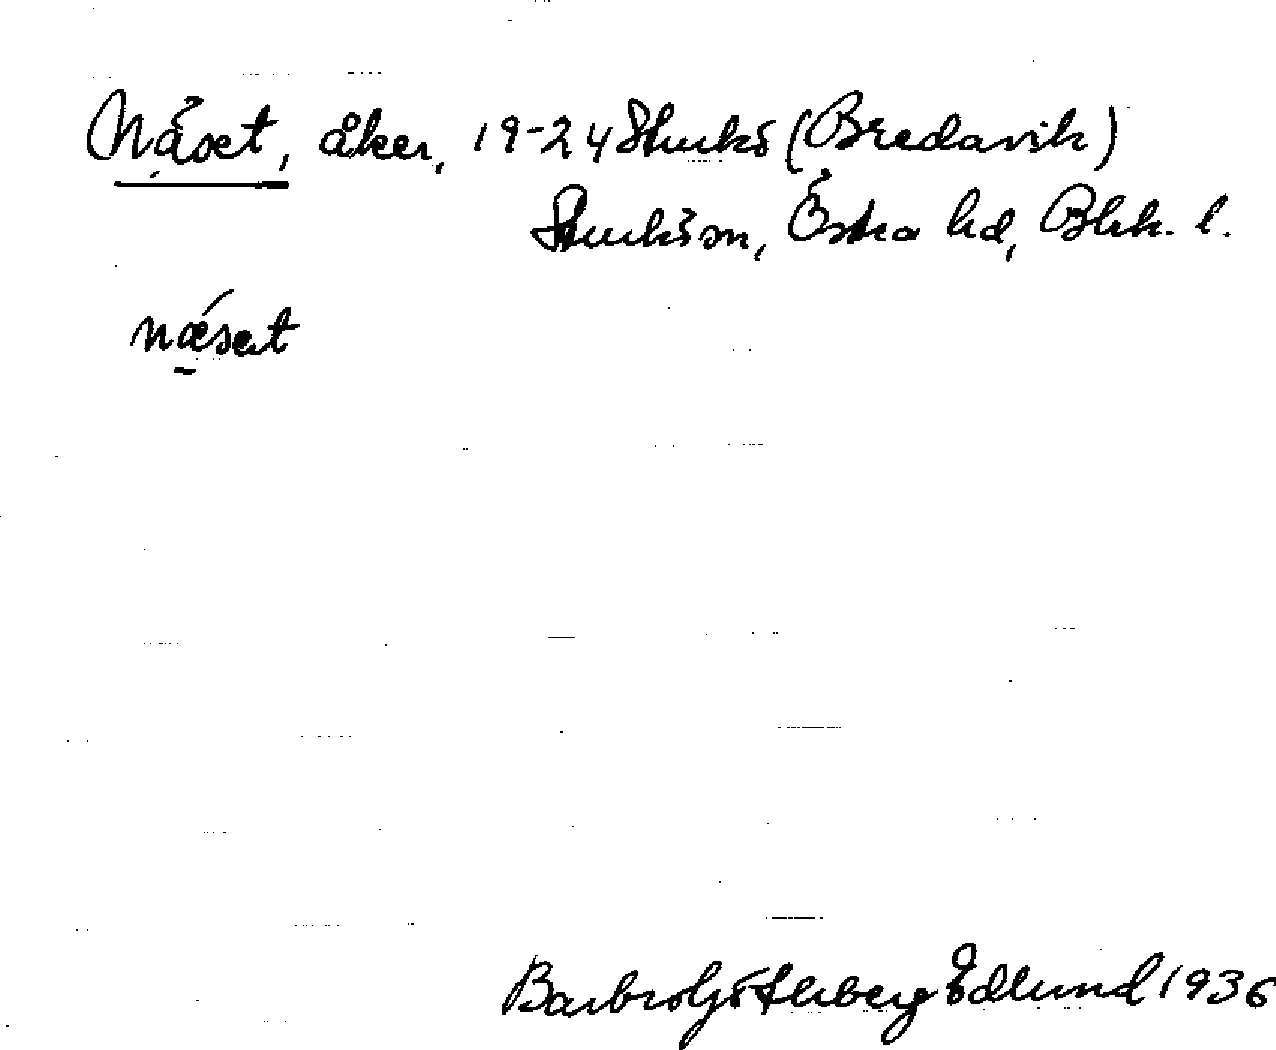 Näset, åker, 19-24 Sturkö (Bredavik)
Sturkö sn, Östra hd, Blek. l.
næ´set
Barbro Götleberg Edlund 1936